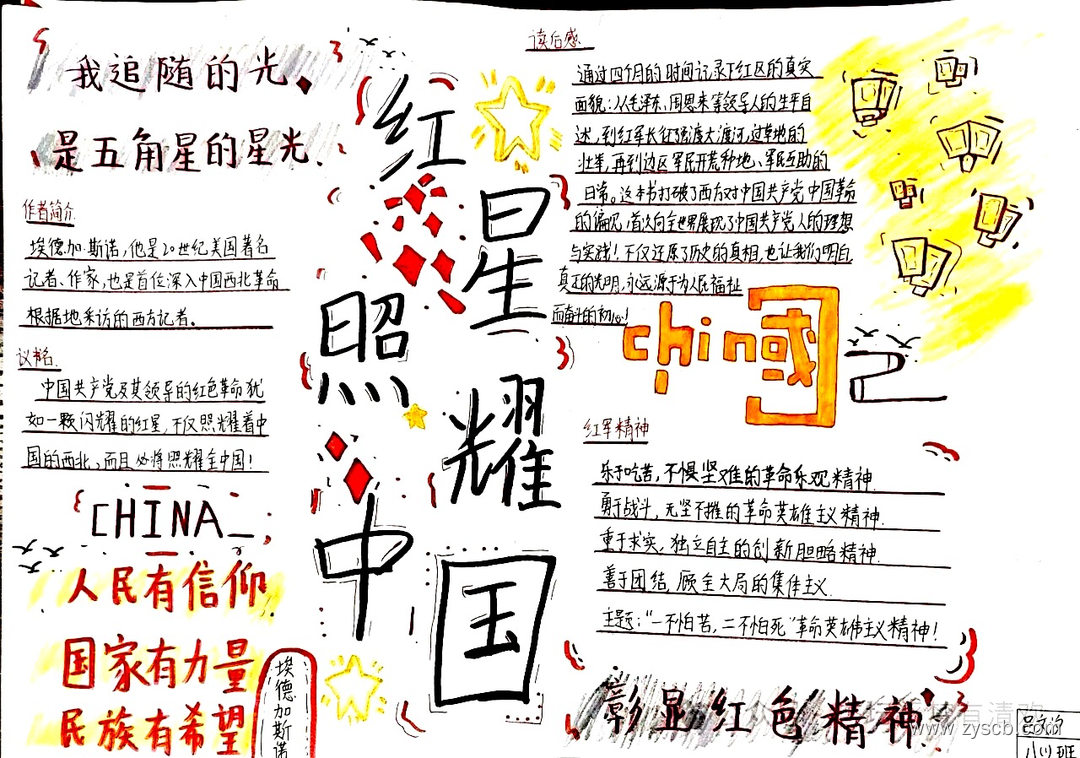 我追随的光
是五角星的星光
作者简介
埃德加·斯诺,他是20世纪美国著名
记者、作家,也是首位深入中国西北革命
根据地采访的西方记者。
议书名
中国共产党及其领导的红色革命犹
如一颗闪耀的红星,不仅照耀着中
国的西北,而且必将照耀全中国!
CHINA
人民有信仰
国家有力量
民族有希望
埃德加斯诺
红星照耀中国
读后感
通过四个月的时间记录了红区的真实
面貌:从毛泽东、周恩来等领导人的生平自
述,到红军长征强渡大渡河、过草地的
壮举,再到边区军民开荒种地、军民互助的
日常。这本书打破了西方对中国共产党中国革命
的偏见,首次向全世界展现了中国共产党人的理想
与实践!不仅还原了历史的真相,也让我们明白
真正的光明,永远源于为人民福祉
而奋斗的初心!
china国
红军精神
乐于吃苦,不惧艰难的革命乐观精神
勇于战斗,无坚不摧的革命英雄主义精神
重于求实,独立自主的创新胆略精神
善于团结,顾全大局的集体主义
主题:“一不怕苦,二不怕死”革命英雄主义精神!
彰显红色精神
www.zyscb.com
八(1)班